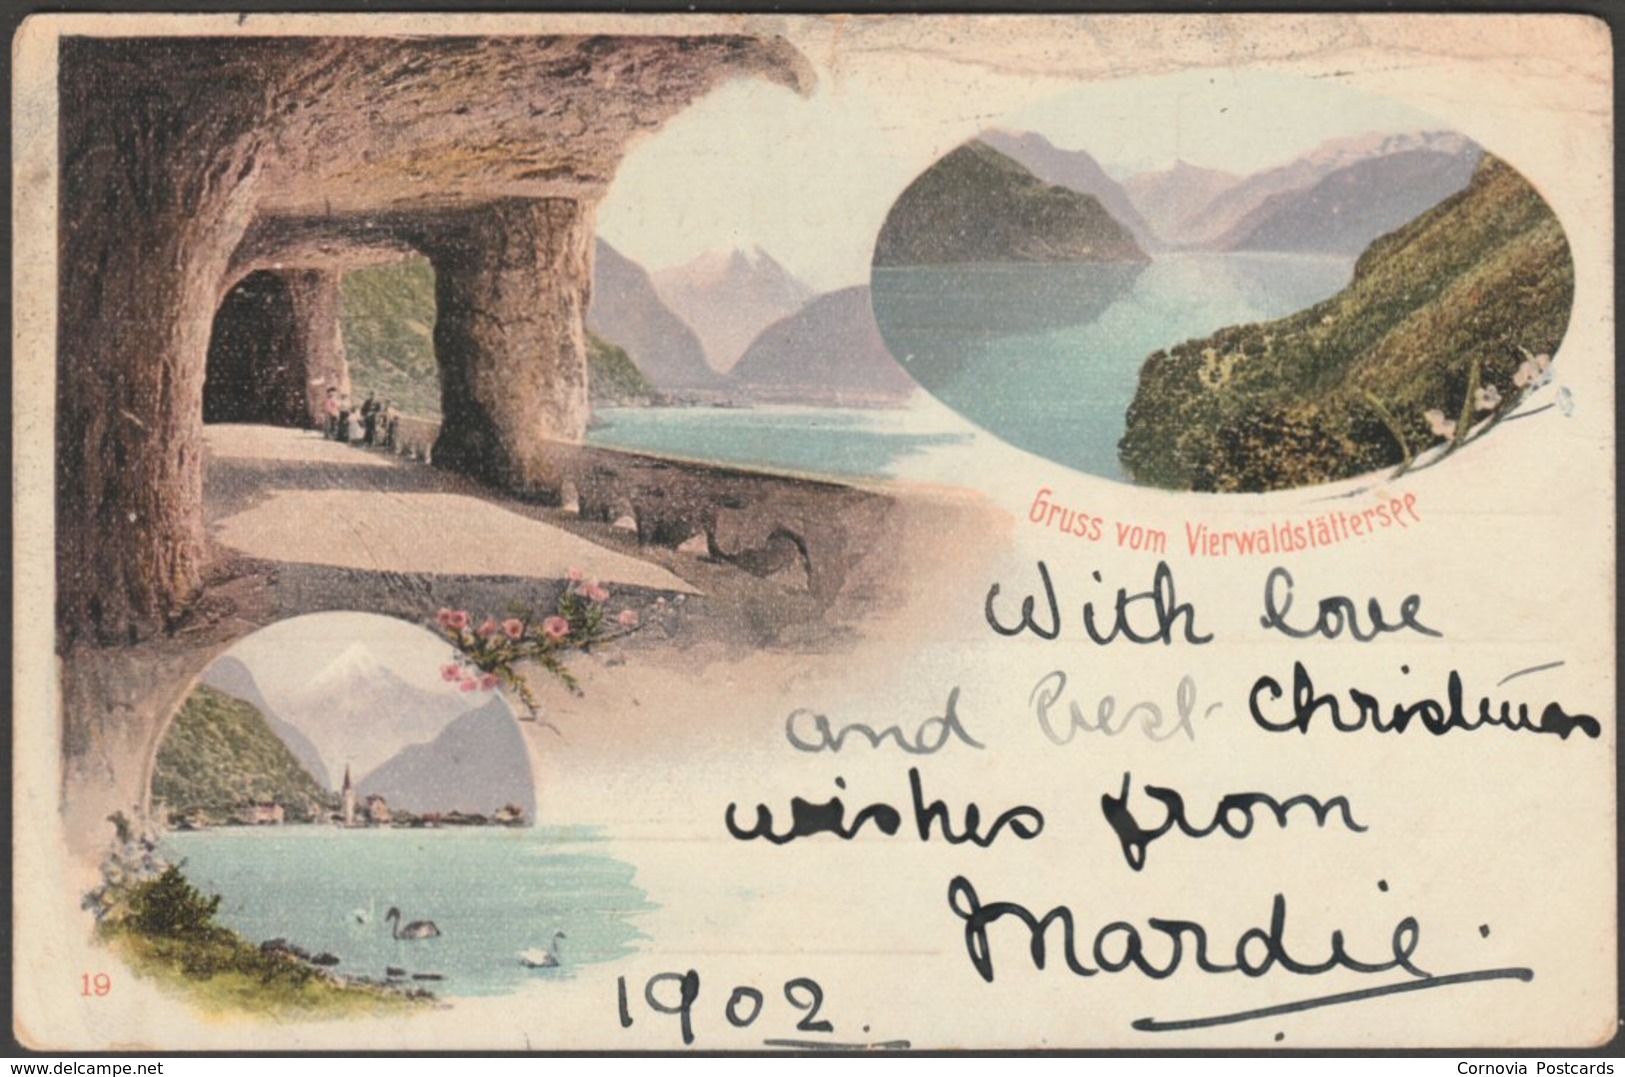 Gruss vom Vierwaldstättersee
With love
and best Christmas
wishes from
Mardie.
1902.
19
www.delcampe.net
Cornovia Postcards